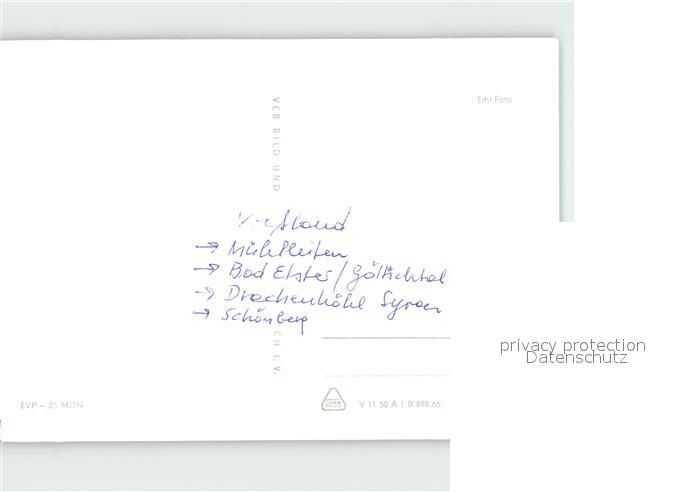 Echt Foto
VEB BILD UND
Vogtland
→ Mühlleiten
→ Bad Elster / Göltschtal
→ Drachenhöhle Syrau
→ Schönberg
CH I. V.
privacy protection
Datenschutz
EVP –,25 MDN
V 11 50 A 1 B 898/65